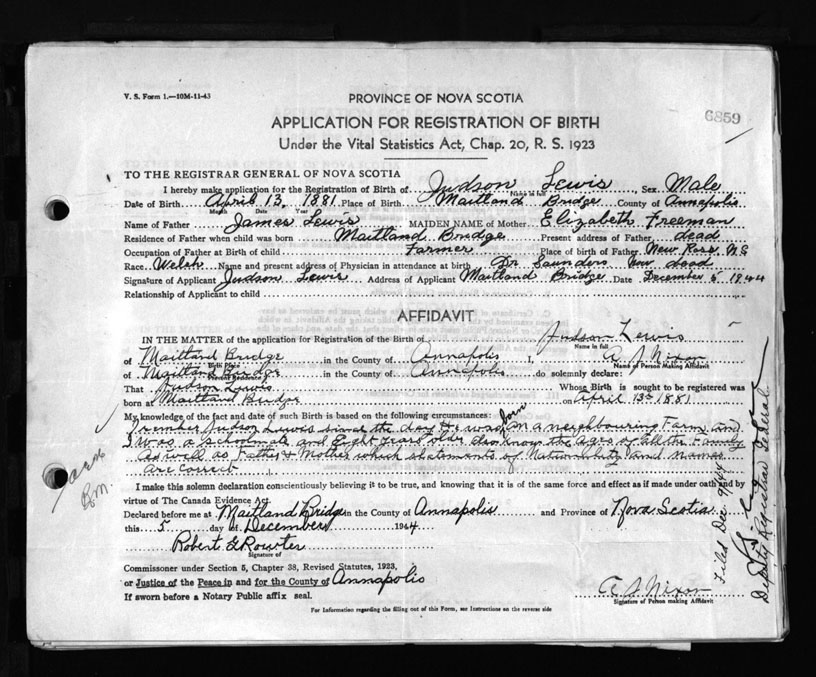 V. S. Form 1.—10M-11-43
PROVINCE OF NOVA SCOTIA
6859
APPLICATION FOR REGISTRATION OF BIRTH
Under the Vital Statistics Act, Chap. 20, R. S. 1923
TO THE REGISTRAR GENERAL OF NOVA SCOTIA
I hereby make application for the Registration of Birth of Judson Lewis Sex Male
Name in full
Date of Birth April 13, 1881 Place of Birth Maitland Bridge County of Annapolis
Month Date Year
Name of Father James Lewis MAIDEN NAME of Mother Elizabeth Freeman
Residence of Father when child was born Maitland Bridge Present address of Father dead
Occupation of Father at Birth of child Farmer Place of birth of Father New Ross, N S
Race Welsh Name and present address of Physician in attendance at birth Dr Saunders Now dead
Signature of Applicant Judson Lewis Address of Applicant Maitland Bridge Date December 5 1944
Relationship of Applicant to child
AFFIDAVIT
IN THE MATTER of the application for Registration of the Birth of Judson Lewis
Name in full
of Maitland Bridge in the County of Annapolis I, A S Nixon
Birth Place
Name of Person Making Affidavit
of Maitland Bridge in the County of Annapolis do solemnly declare:
Present Residence
That Judson Lewis Whose Birth is sought to be registered was
born at Maitland Bridge on April 13th 1881
My knowledge of the fact and date of such Birth is based on the following circumstances:
I remember Judson Lewis since the day He was born on a neighbouring Farm and
I was a schoolmate and Eight years older also know the ages of all the Family
As well as Father & Mother which statements of Nationality and names
Are correct
I make this solemn declaration conscientiously believing it to be true, and knowing that it is of the same force and effect as if made under oath and by
virtue of The Canada Evidence Act.
Declared before me at Maitland Bridge in the County of Annapolis and Province of Nova Scotia
this 5 day of December 1944
Robert G Rowter
Signature of
Commissioner under Section 5, Chapter 38, Revised Statutes, 1923,
or Justice of the Peace in and for the County of Annapolis
If sworn before a Notary Public affix seal.
A S Nixon
Signature of Person making Affidavit
For Information regarding the filling out of this Form, see Instructions on the reverse side
Filed Dec 9/44
Deputy Registrar General
R.M.